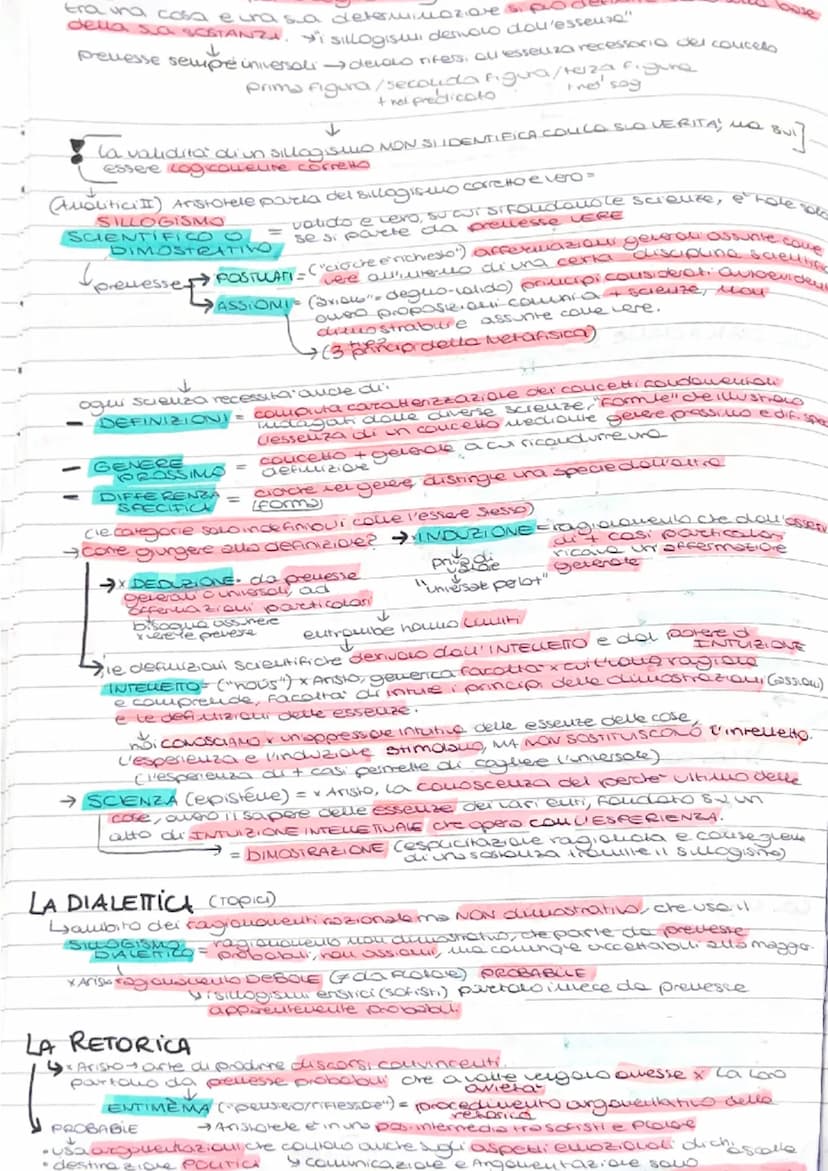 tra una cosa e una sua determinazione si può base
della sua SOSTANZA. → "i sillogismi derivano dall'essenza"
premesse sempre universali → devono riferirsi all'essenza necessaria del concetto
prima figura/seconda figura/terza figura
+ nel predicato nel sog
! La validità di un sillogismo NON SI IDENTIFICA CON LA SUA VERITÀ, ma sul
essere logicamente corretto
(Analitici II) Aristotele parla del sillogismo corretto e vero =
SILLOGISMO SCIENTIFICO O DIMOSTRATIVO = valido e vero, su cui si fondano le scienze, è tale solo
se si parte da premesse VERE
↓ premesse → POSTULATI = ("ciò che è richiesto") affermazioni generali assunte come
vere all'interno di una certa disciplina scientifi
→ ASSIOMI = ("axioma" = degno-valido) principi considerati autoevidenti
ovvero proposizioni comuni a + scienze, non
dimostrabili e assunte come vere.
→ (3 principi della Metafisica)
ogni scienza necessita anche di:
- DEFINIZIONI = compiuta caratterizzazione dei concetti fondamentali
indagati dalle diverse scienze, "formule" che illustrano
l'essenza di un concetto mediante genere prossimo e dif. spe
- GENERE PROSSIMO = concetto + generale a cui ricondurre una
definizione
- DIFFERENZA SPECIFICA = ciò che nel genere distingue una specie dall'altra
(forma)
(le categorie sono indefinibili come l'essere stesso)
→ come giungere alla definizione? → INDUZIONE = ragionamento che dall'osserv
di + casi particolari
ricava un'affermazione
generale
priva di valore
"universale per lo +"
→ x DEDUZIONE = da premesse
generali o universali, ad
affermazioni particolari
bisogna assumere
x vere le premesse
entrambe hanno limiti
→ le definizioni scientifiche derivano dall'INTELLETTO e dal potere di
INTUIZIONE
INTELLETTO = ("noûs") x Aristo, generica facoltà x cui l'uomo ragiona
e comprende, facoltà di intuire i principi delle dimostrazioni (assiomi)
e le definizioni delle essenze.
noi CONOSCIAMO x un'apprensione intuitiva delle essenze delle cose,
l'esperienza e l'induzione stimolano, MA NON SOSTITUISCONO l'intelletto.
(l'esperienza di + casi permette di cogliere l'universale)
→ SCIENZA (epistéme) = x Aristo, la conoscenza del perché ultimo delle
cose, ovvero il sapere delle essenze dei vari enti, fondato su un
atto di INTUIZIONE INTELLETTUALE che opera CON L'ESPERIENZA.
→ = DIMOSTRAZIONE (esplicitazione ragionata e conseguen
di una sostanza tramite il sillogismo)
LA DIALETTICA (TOPICI)
↳ ambito dei ragionamenti razionale ma NON dimostrativo, che usa il
SILLOGISMO DIALETTICO = ragionamento non dimostrativo, che parte da premesse
probabili, non assiomi, ma comunque accettabili alla maggor.
x Aristo ragionamento DEBOLE (≠ da Platone) PROBABILE
↘ i sillogismi eristici (sofisti) partono invece da premesse
apparentemente probabili.
LA RETORICA
↳ x Aristo → arte di produrre discorsi convincenti.
partono da premesse probabili che a volte vengono omesse x la loro
ovvietà
ENTIMÈMA ("pensiero/riflessione") = procedimento argomentativo della
retorica
PROBABILE → Aristotele è in una pos. intermedia tra sofisti e Platone
• usa argomentazioni che contano anche sugli aspetti emozionali di chi ascolta
• destinazione POLITICA ↘ comunicazione e argomentazione sono